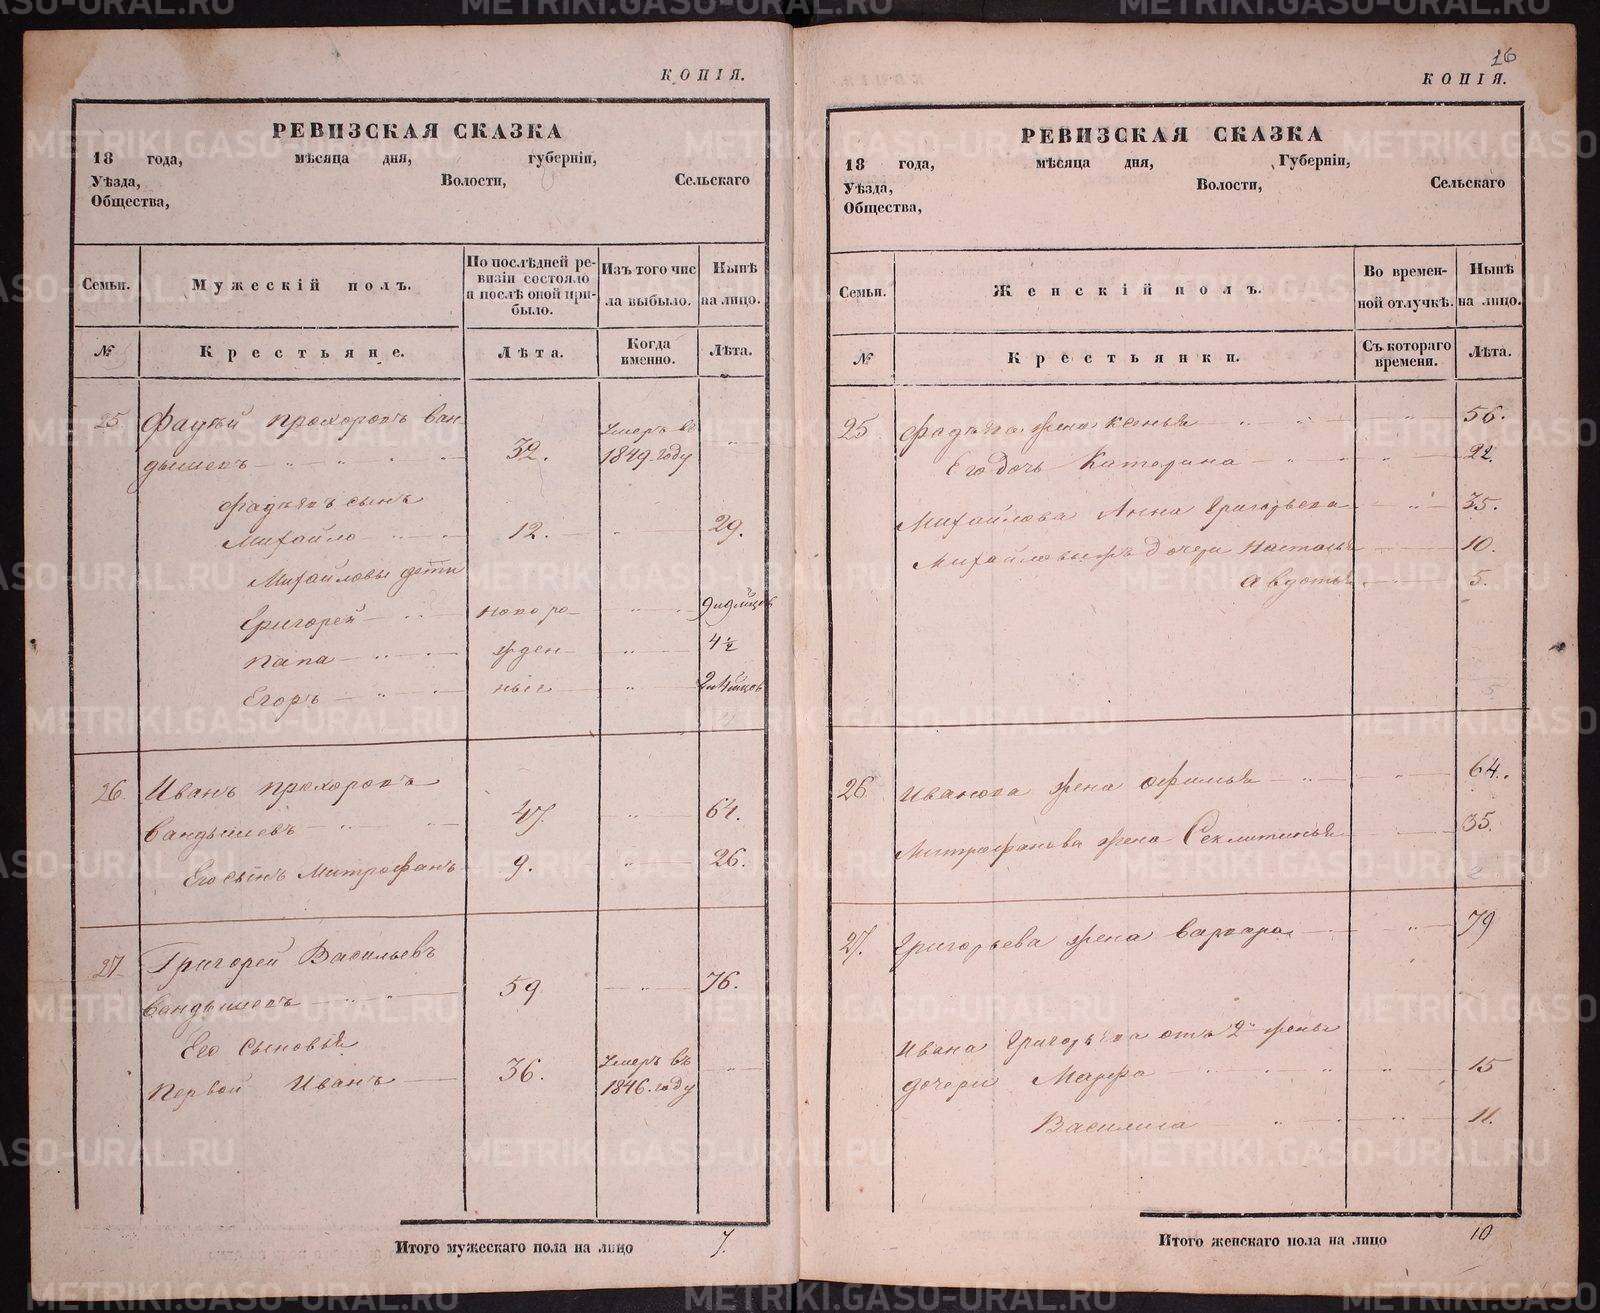 КОПІЯ.
РЕВИЗСКАЯ СКАЗКА
18 года, мѣсяца дня, губерніи,
Уѣзда, Волости, Сельскаго
Общества,
Семьи. Мужескій полъ. По послѣдней ревизіи состояло и послѣ оной прибыло. Изъ того числа выбыло. Нынѣ на лицо.
№ Крестьяне. Лѣта. Когда именно. Лѣта.
25. Фадѣй Прохоровъ Ван
дышевъ 32. Умеръ въ 1849 году
Фадѣевъ сынъ
Михайло 12. 29.
Михайловы дети
Григорей новоро
4½
Егоръ ные
26. Иванъ Прохоровъ
Вандышевъ 47. 64.
Его сынъ Митрофанъ 9. 26.
27 Григорей Васильевъ
Вандышевъ 59. 76.
Его сыновья
Первой Иванъ 36. Умеръ въ 1846 году
Итого мужескаго пола на лицо 7.
26
КОПІЯ.
РЕВИЗСКАЯ СКАЗКА
18 года, мѣсяца дня, Губерніи,
Уѣзда, Волости, Сельскаго
Общества,
Семьи. Женскій полъ. Во временной отлучкѣ. Нынѣ на лицо.
№ Крестьянки. Съ котораго времени. Лѣта.
25 Фадѣева жена Ксенья 56.
Его дочь Катерина 22.
Михайлова Анна Григорьева 35.
Михайловыхъ дочери Настасья 10.
Авдотья 5.
26 Иванова жена Офимья 64.
Митрофанова жена Секлитинья 35.
27. Григорьева жена Варвара 79
Ивана Григорьева отъ 2й жены
дочери Марфа 15
Василиса 11.
Итого женскаго пола на лицо 10
METRIKI.GASO-URAL.RU